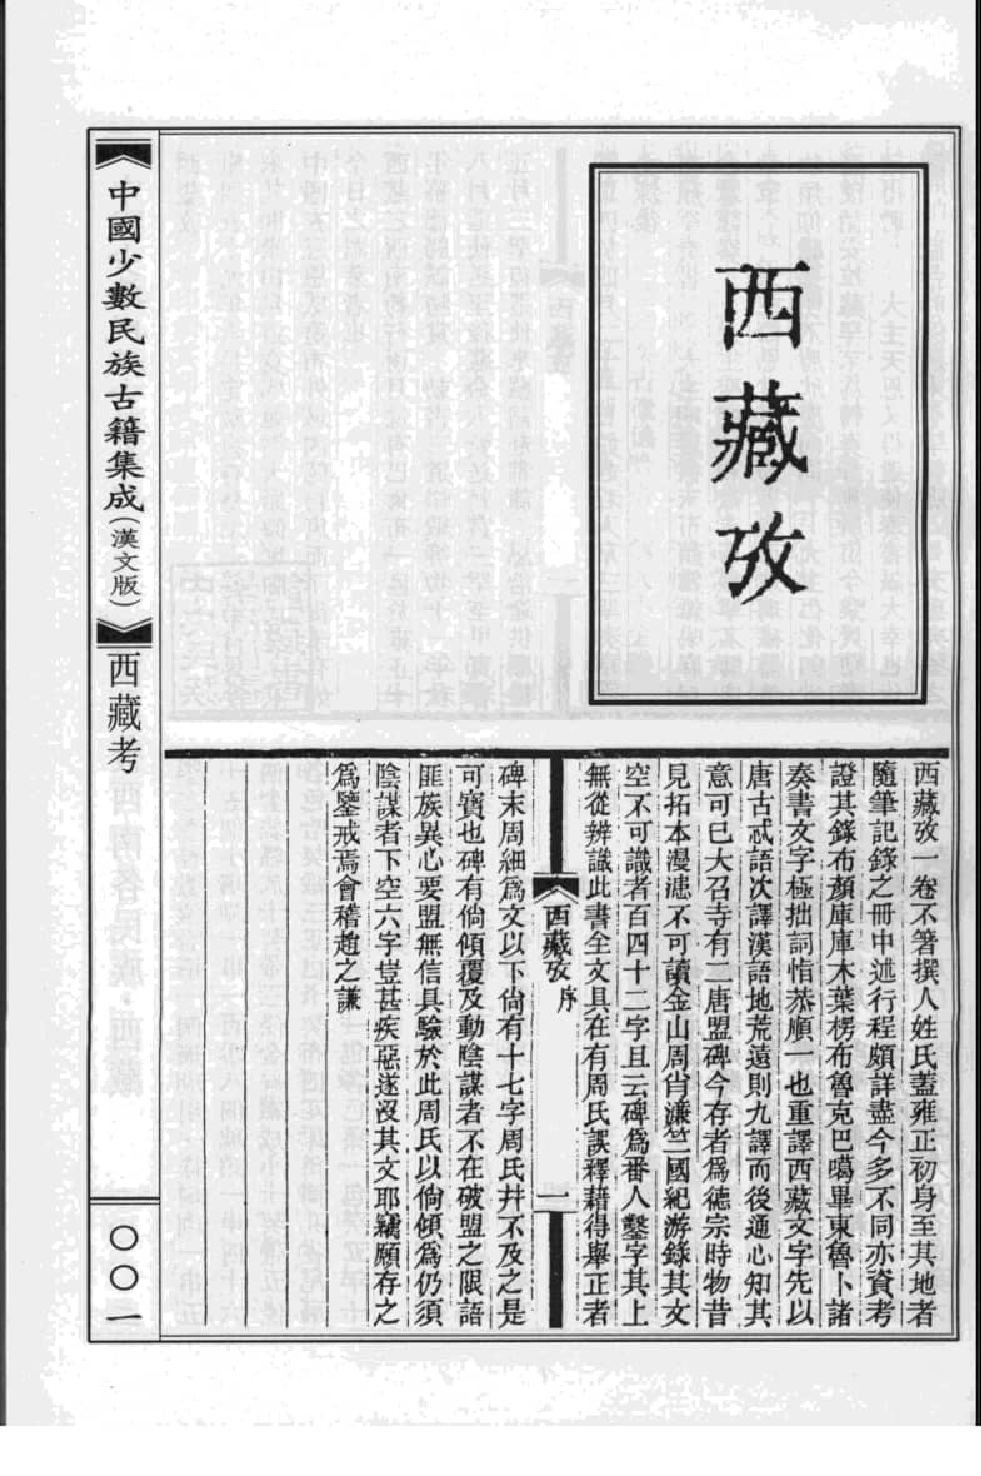 西藏攷
西藏攷一卷不箸撰人姓氏蓋雍正初身至其地者
隨筆記錄之冊中述行程頗詳盡今多不同亦資考
證其錄布顏庫庫木葉楞布魯克巴噶畢東魯卜諸
奏書文字極拙詞恉恭順一也重譯西藏文字先以
唐古忒語次譯漢語地荒遠則九譯而後通心知其
意可巳大召寺有二唐盟碑今存者爲德宗時物昔
見拓本漫漶不可讀金山周肖濂竺國紀游錄其文
空不可識者百四十二字且云碑爲番人鑿字其上
無從辨識此書全文具在有周氏誤釋藉得舉正者
西藏攷 序
一
碑末周細爲文以下尙有十七字周氏幷不及之是
可寶也碑有倘傾覆及動陰謀者不在破盟之限語
匪族異心要盟無信具驗於此周氏以倘傾爲仍須
陰謀者下空六字豈甚疾惡遂沒其文耶竊願存之
爲鑒戒焉會稽趙之謙
中國少數民族古籍集成(漢文版)
西藏考
〇〇一